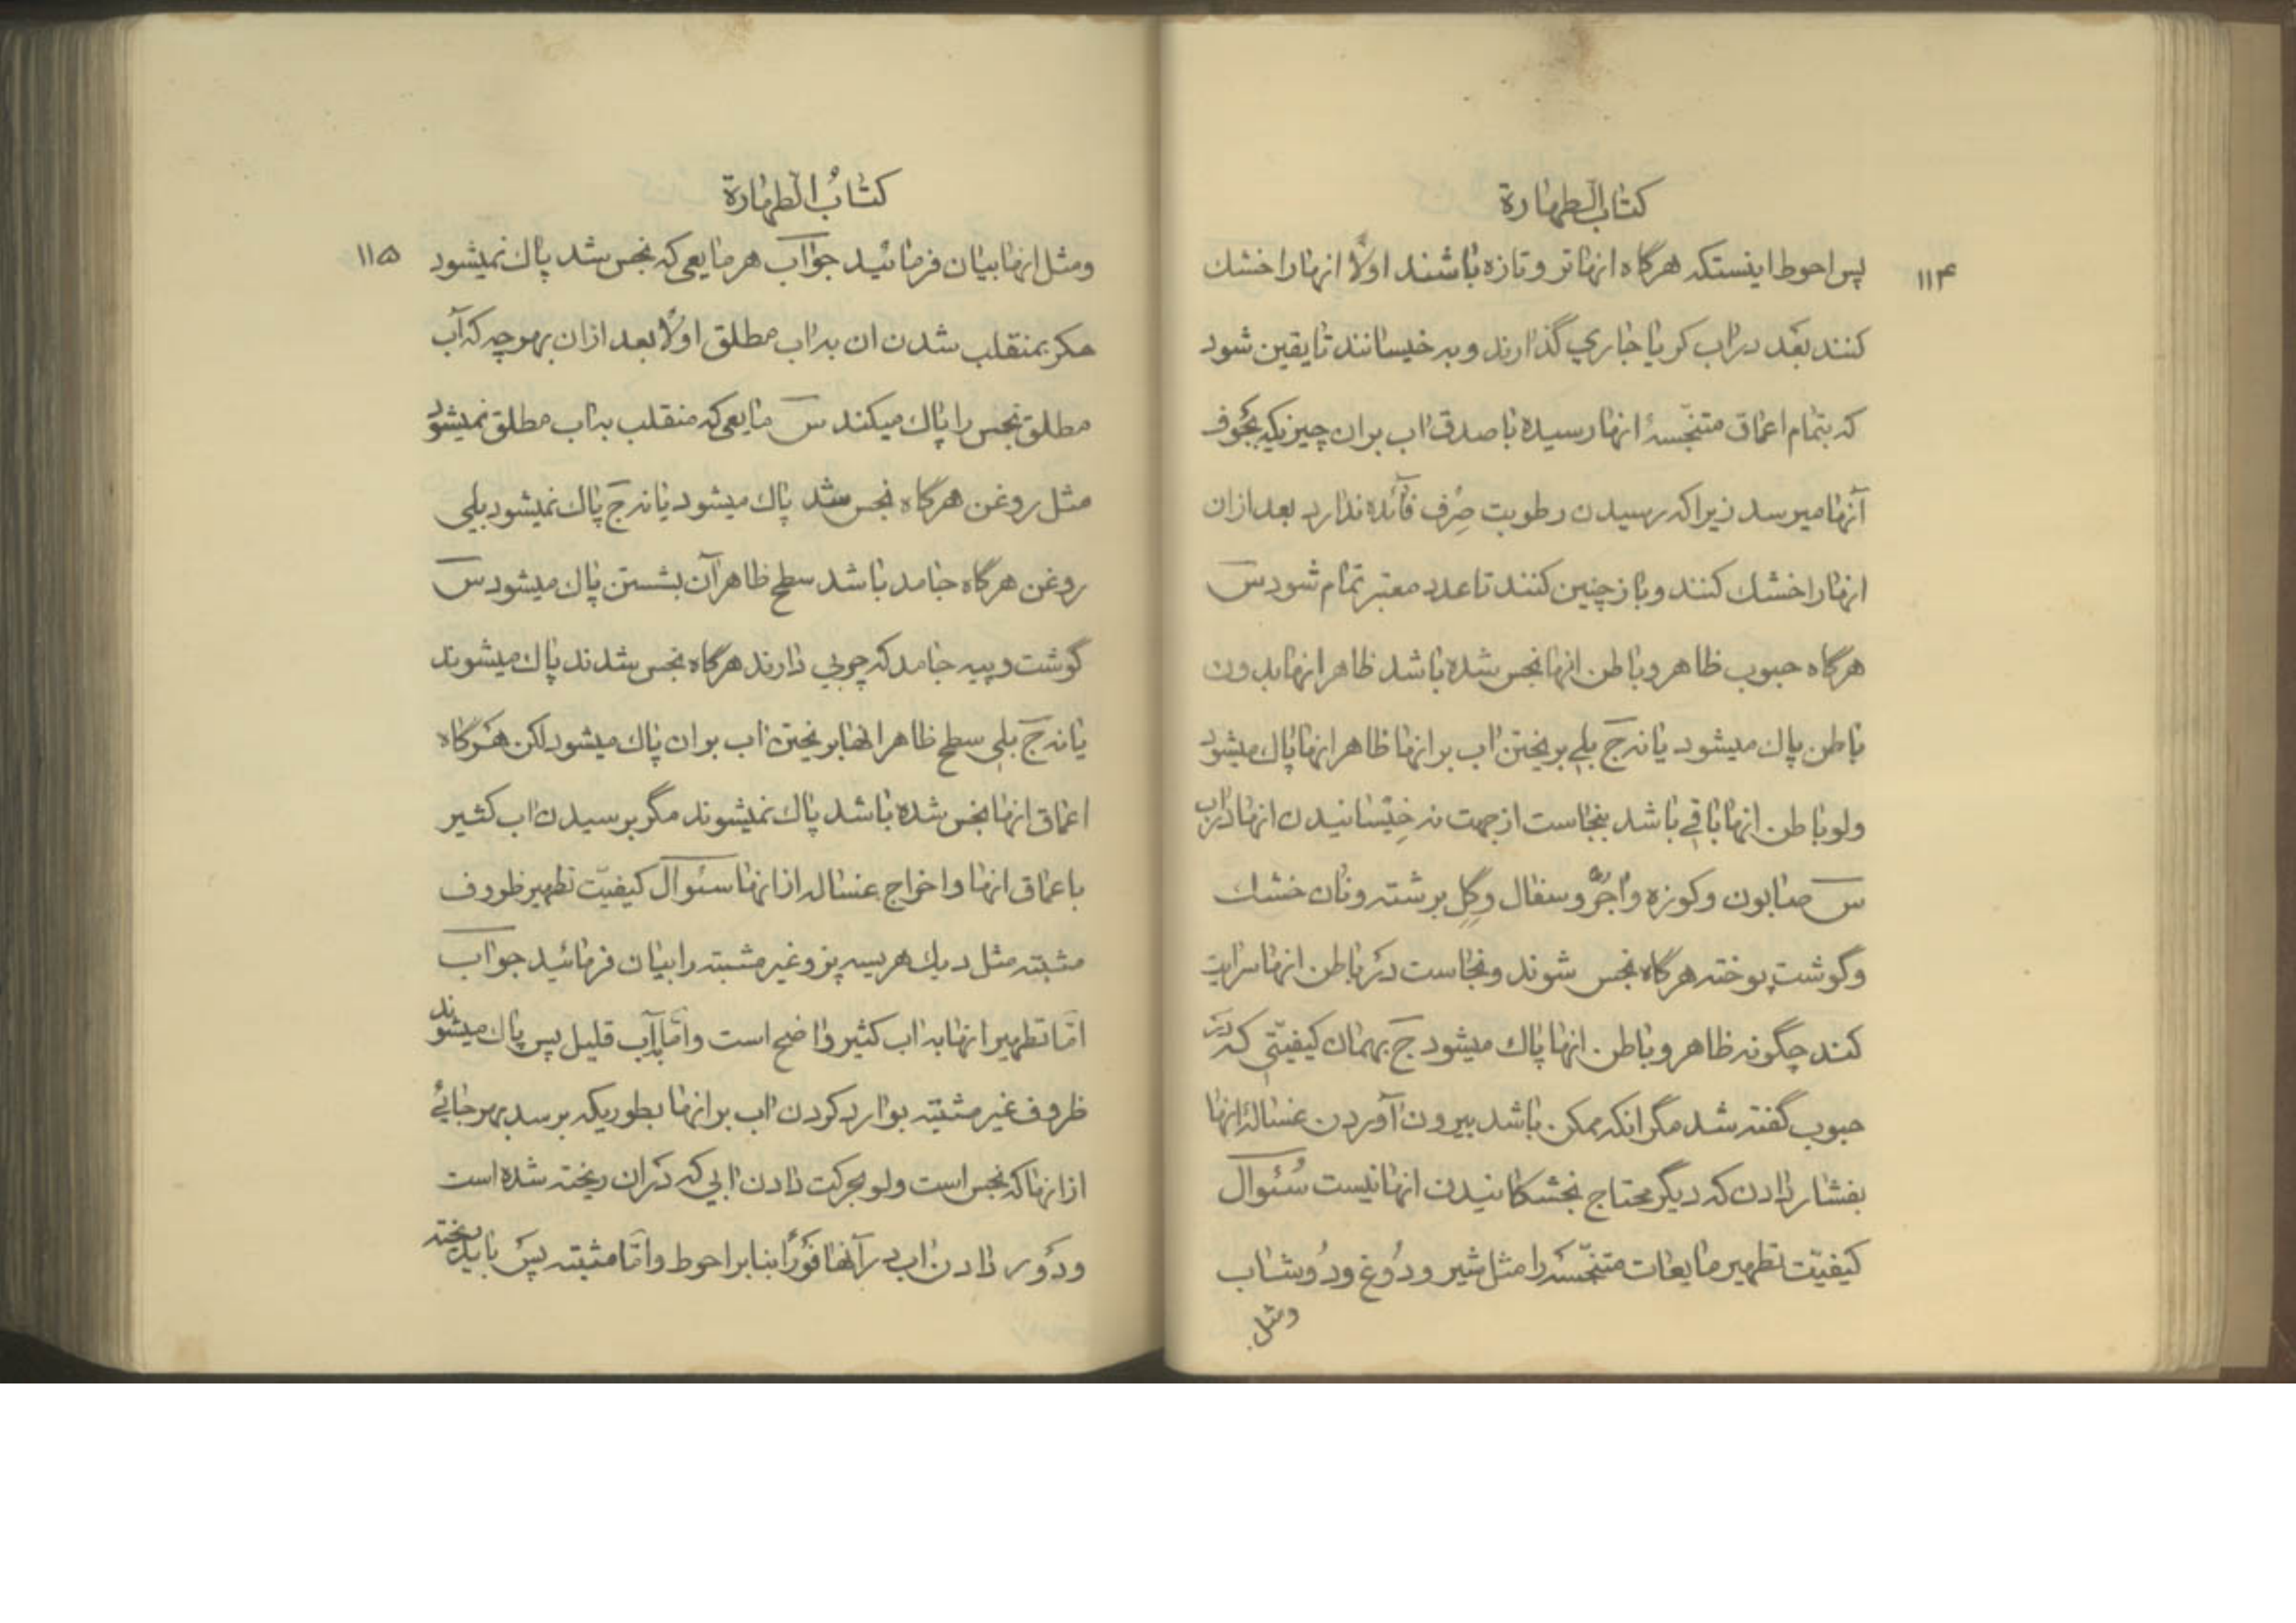 كتاب الطهارة
١١۴
پس احوط اینستکه هرگاه انها تر و تازه باشند اولًا انها را خشك
کنند بعَد در اب کر یا جاري گذارند و به خیسانند تا یقین شود
که بتمام اعماق متنجّسهٔ انها رسیده با صدق اب بران چیزیکه بجَوف
آنها میرسد زیرا که رسیدن رطوبت صِرف فآئده ندارد بعد ازان
انها را خشك کنند و باز چنین کنند تا عدد معتبر تمام شود س
هرگاه حبوب ظاهر و باطن انها نجس شده باشد ظاهر انها بدون
باطن پاك میشود یا نه ج بلے بریختن اب بر انها ظاهر انها پاك میشود
ولو باطن انها باقے باشد بنجاست از جهت نه خیْسانیدن انها در اب
س صابون و کوزه و اجُرّ و سفال و گِل برشته و نان خشك
و گوشت پوخته هرگاه نجس شوند و نجاست دَر باطن انها سرایت
کند چگونه ظاهر و باطن انها پاك میشود ج بهمان کیفیّتي که دَر
حبوب گفته شد مگر انکه ممکن باشد بیرون آوردن غسالهٔ انها
بفشار دادن که دیگر محتاج بخشکانیدن انها نیست سُئوال
کیفیّت تطهیر مایعات متنجّسَه را مثل شیر و دُوغ و دُوشاب
ومثل
كتابُ الطهارة
١١۵
ومثل انها بیان فرمائید جواب هر مایعی که نجس شد پاك نمیشود
مکر بمنقلب شدن ان به اب مطلق اولًا بعد ازان بهر وجه که آب
مطلق نجس را پاك میکند س مایعی که منقلب به اب مطلق نمیشود
مثل روغن هرگاه نجس شد پاك میشود یا نه ج پاك نمیشود بلی
روغن هرگاه جامد باشد سطح ظاهر آن بشستن پاك میشود س
گوشت و پیه جامد که چربي دارند هرگاه نجس شدند پاك میشوند
یا نه ج بلی سطح ظاهر انها بریختن اب بران پاك میشود لکن هَرگاه
اعماق انها نجس شده باشد پاك نمیشوند مگر برسیدن اب کثیر
باعماق انها و اخراج غساله از انها سئوال کیفیّت تطهیر ظروف
مثبته مثل دیك هریسه پز و غیر مثبته را بیان فرمائید جواب
امّا تطهیر انها به اب کثیر واضح است و امّا بآب قلیل پس پاك میشوند
ظروف غیر مثبته بوارد کردن اب بر انها بطوریکه برسد بهر جائے
از انها که نجس است ولو بحرکت دادن ابي که دَران ریخته شده است
و دَور دادن اب در آنها فَورًا بنا بر احوط و امّا مثبته پسَ باید ریخته